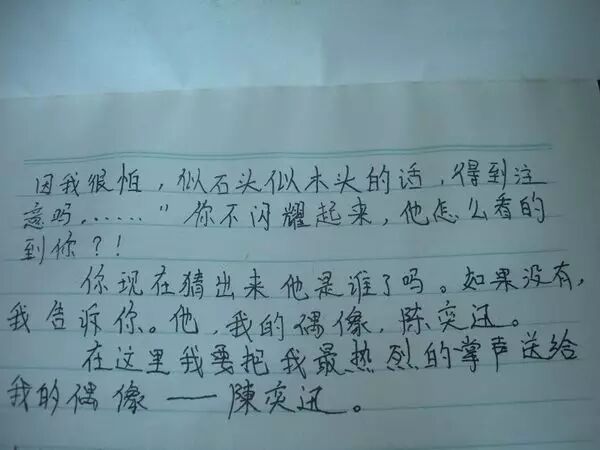 因我很怕，似石头似木头的话，得到注
意吗，……"你不闪耀起来，他怎么看的
到你？！
你现在猜出来他是谁了吗。如果没有，
我告诉你。他，我的偶像，陈奕迅。
在这里我要把我最热烈的掌声送给
我的偶像——陳奕迅。